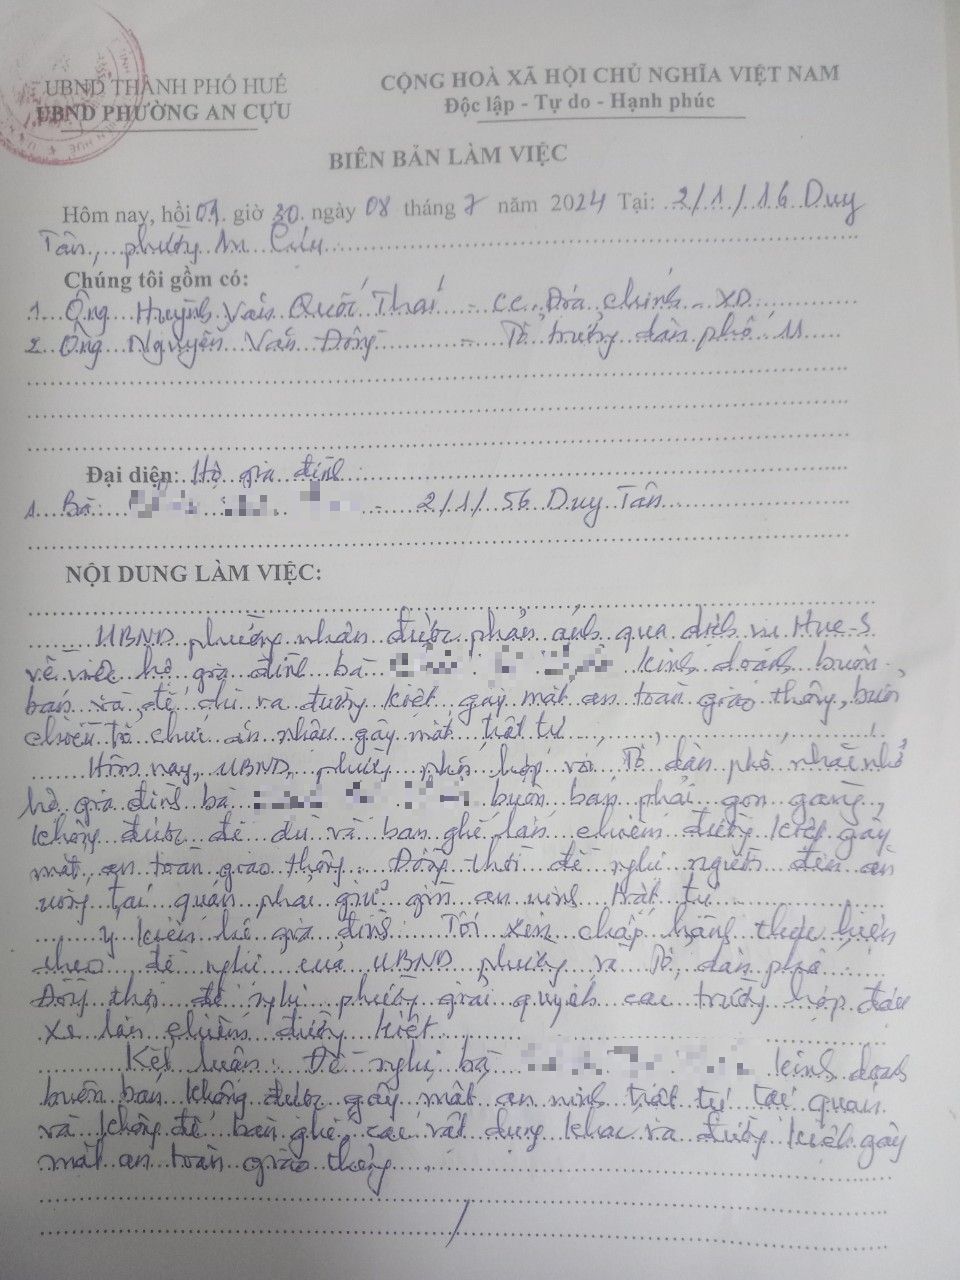 UBND THÀNH PHỐ HUẾ
UBND PHƯỜNG AN CỰU
CỘNG HOÀ XÃ HỘI CHỦ NGHĨA VIỆT NAM
Độc lập - Tự do - Hạnh phúc
BIÊN BẢN LÀM VIỆC
Hôm nay, hồi 09 giờ 30 ngày 08 tháng 7 năm 2024 Tại: 2/1/16 Duy
Tân, phường An Cựu
Chúng tôi gồm có:
1. Ông Huỳnh Văn Quốc Thái - CC. Địa chính - XD
2. Ông Nguyễn Văn Đông - Tổ trưởng dân phố 11
Đại diện: Hộ gia đình
1. Bà - 2/1/56 Duy Tân
NỘI DUNG LÀM VIỆC:
UBND phường nhận được phản ánh qua dịch vụ Hue-S
về việc hộ gia đình bà kinh doanh buôn
bán và để dù ra đường kiệt gây mất an toàn giao thông, buổi
chiều tổ chức ăn nhậu gây mất trật tự
Hôm nay, UBND phường phối hợp với Tổ dân phố nhắc nhở
hộ gia đình bà buôn bán phải gọn gàng,
không được để dù và bàn ghế lấn chiếm đường kiệt gây
mất an toàn giao thông. Đồng thời đề nghị người đến ăn
uống tại quán phải giữ gìn an ninh trật tự
Ý kiến hộ gia đình: Tôi xin chấp hành thực hiện
theo đề nghị của UBND phường và Tổ dân phố.
Đồng thời đề nghị phường giải quyết các trường hợp đậu
xe lấn chiếm đường kiệt.
Kết luận: Đề nghị bà kinh doanh
buôn bán không được gây mất an ninh trật tự tại quán
và không để bàn ghế, các vật dụng khác ra đường kiệt gây
mất an toàn giao thông.